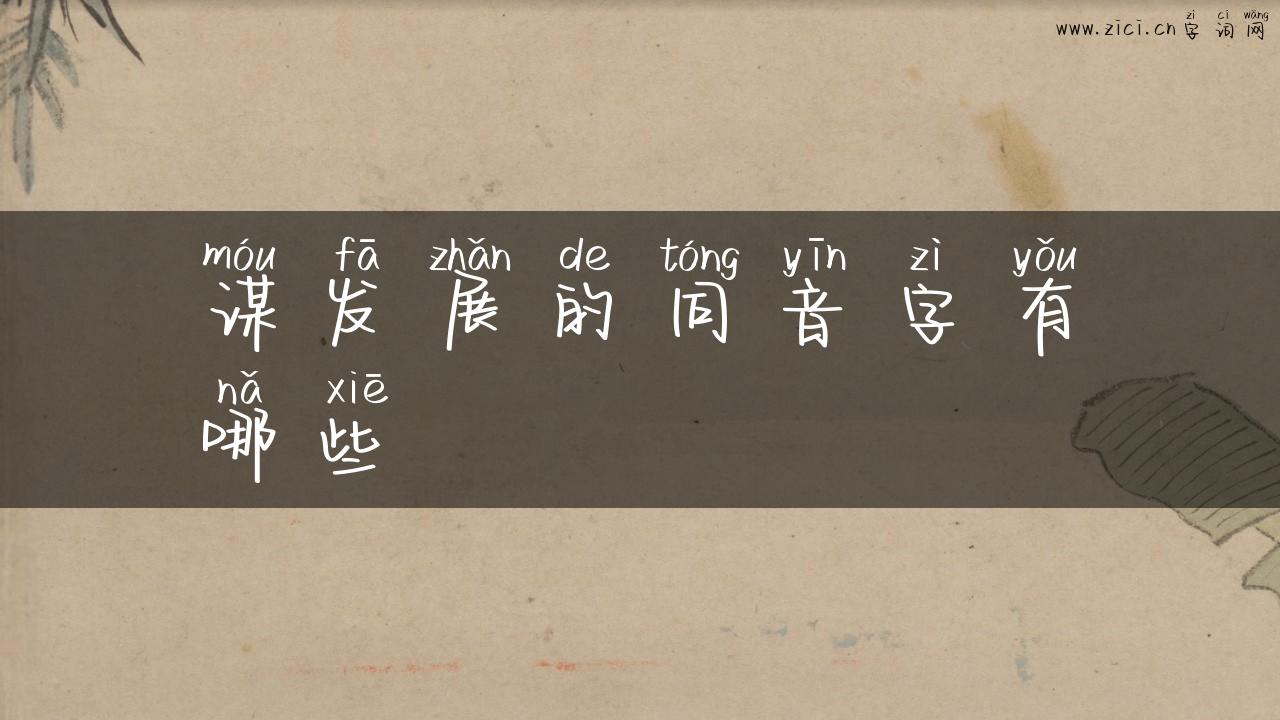 zì cí wǎng
www.zici.cn 字词网
móu fā zhǎn de tóng yīn zì yǒu
谋发展的同音字有
nǎ xiē
哪些